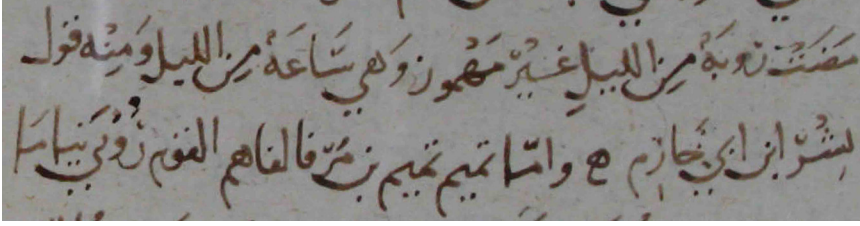 مَضَتْ رُوبَةٌ مِنَ الليلِ غيرُ مَهْموز وَهي سَاعَةٌ مِنَ الليل وَمِنْه قول
بِشْرِ ابن ابي خَازِم ه واما تميم تميم بن مُرّ فالفاهم القوم رُوْبَى نياما